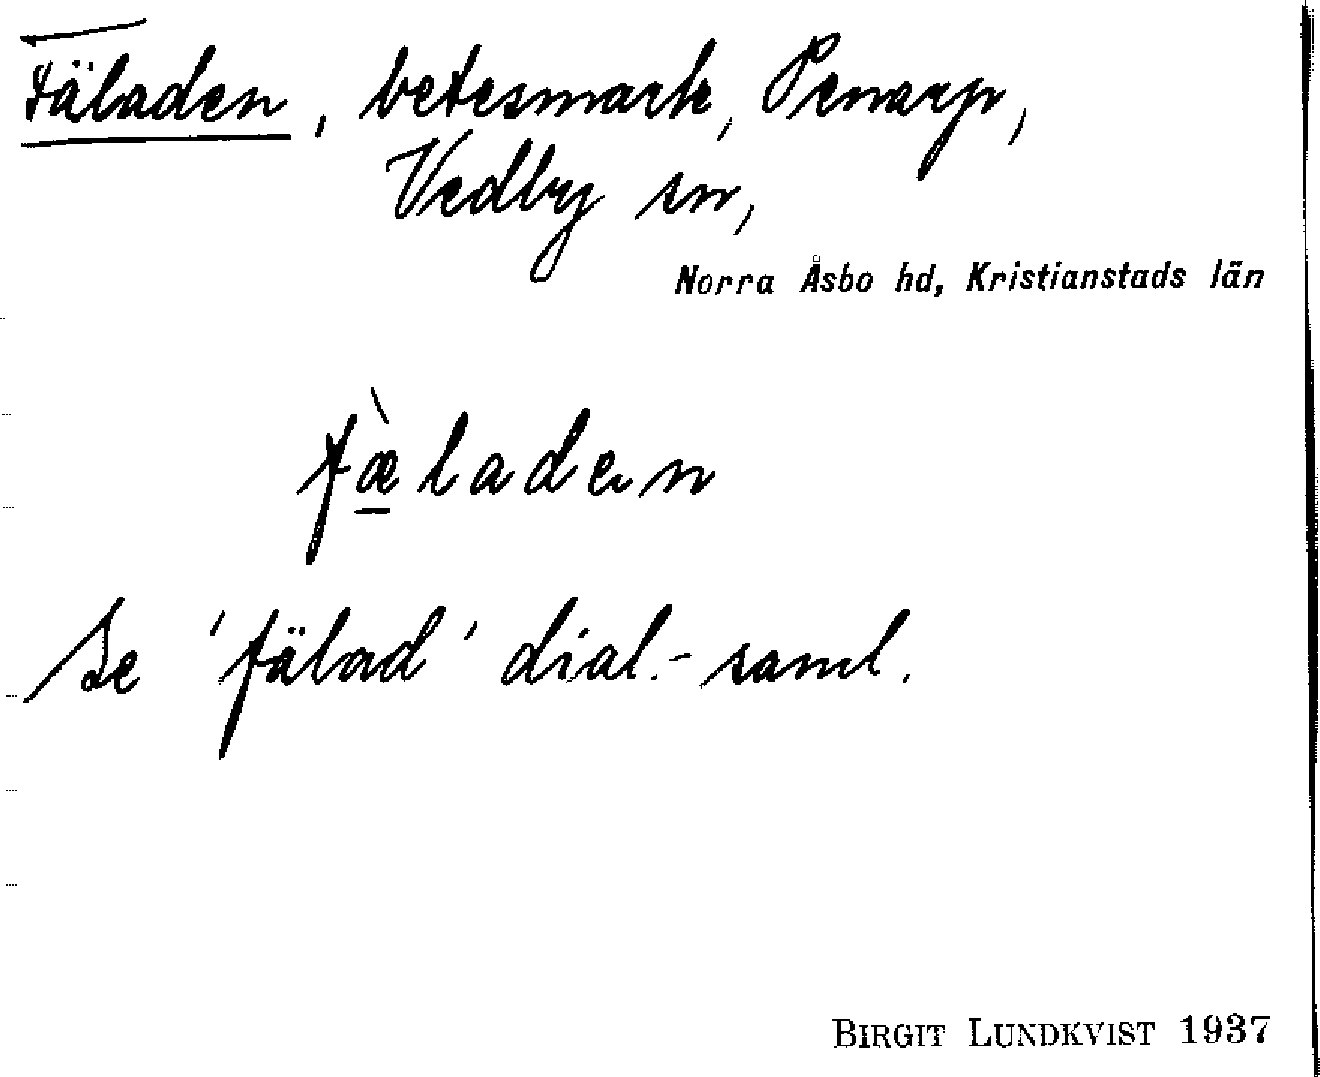 Fäladen, betesmark, Penarp,
Vedby sn,
Norra Åsbo hd, Kristianstads län
fæ̠̀laden
Se 'fälad' dial.-saml.
BIRGIT LUNDKVIST 1937